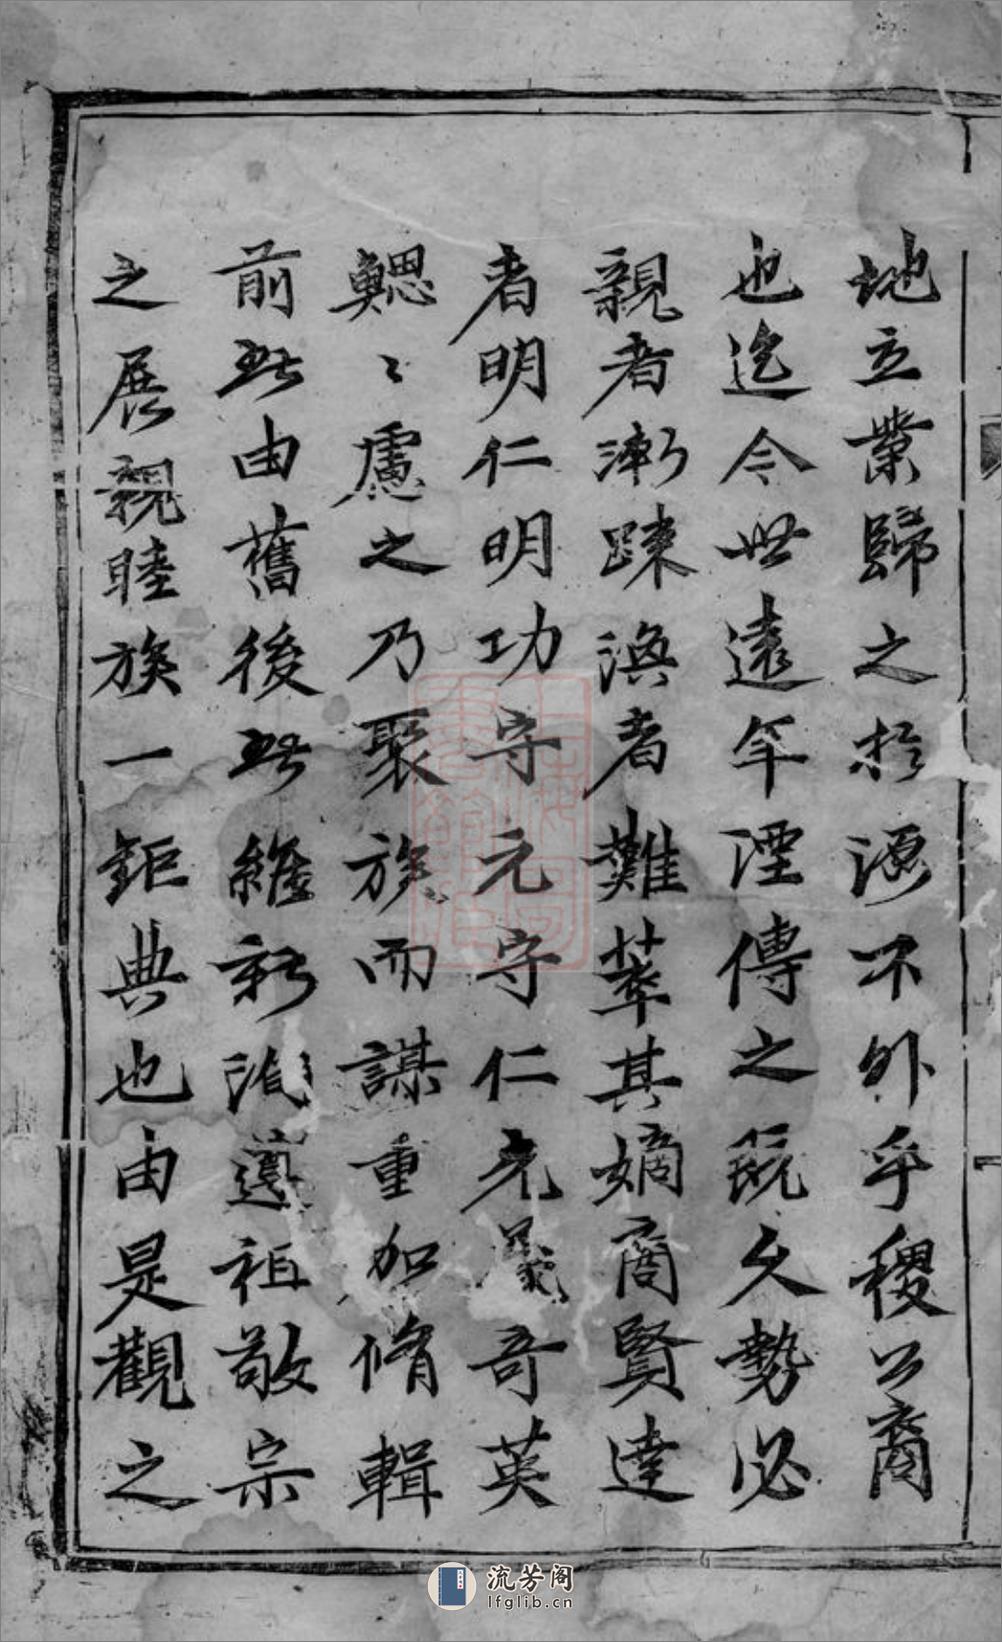 地立業歸之於源不外乎稷公裔
也迄今世遠年湮傳之既久勢必
親者漸踈渙者難萃其嫡裔賢達
者明仁明功守元守仁允晟奇英
鰓〻慮之乃聚族而謀重加脩輯
前此由舊後此維新洵遵祖敬宗
之展親睦族一鉅典也由是觀之
流芳阁
lfglib.cn